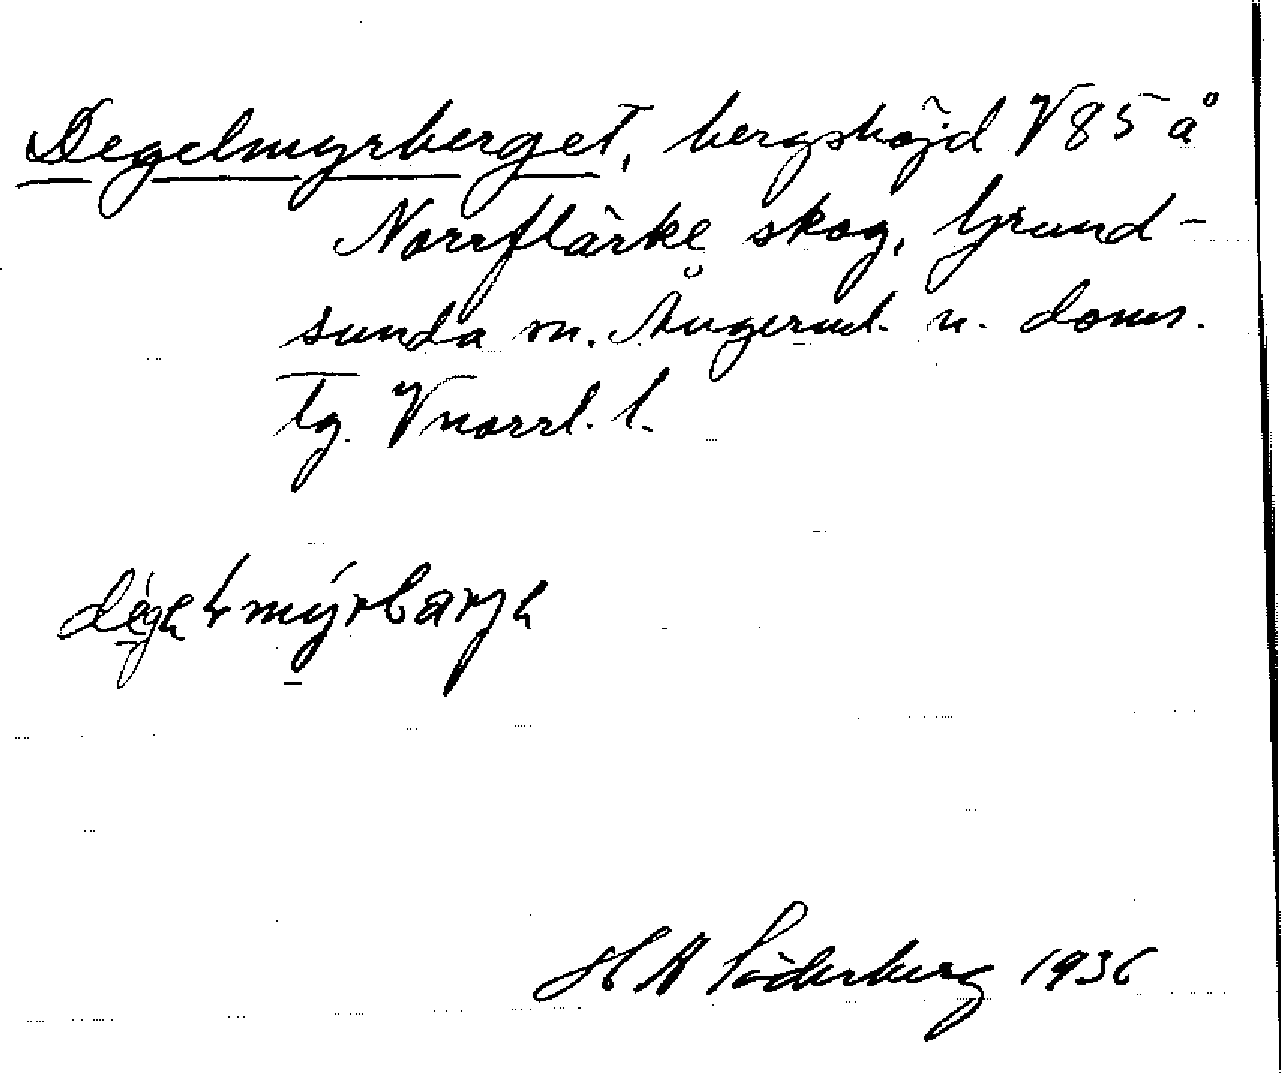 Degelmyrberget, bergshöjd V 85 å
Norrflärke skog, Grund-
sunda sn. Ångerml. n. doms.
tg. Vnorrl. l.
H A Söderberg 1936